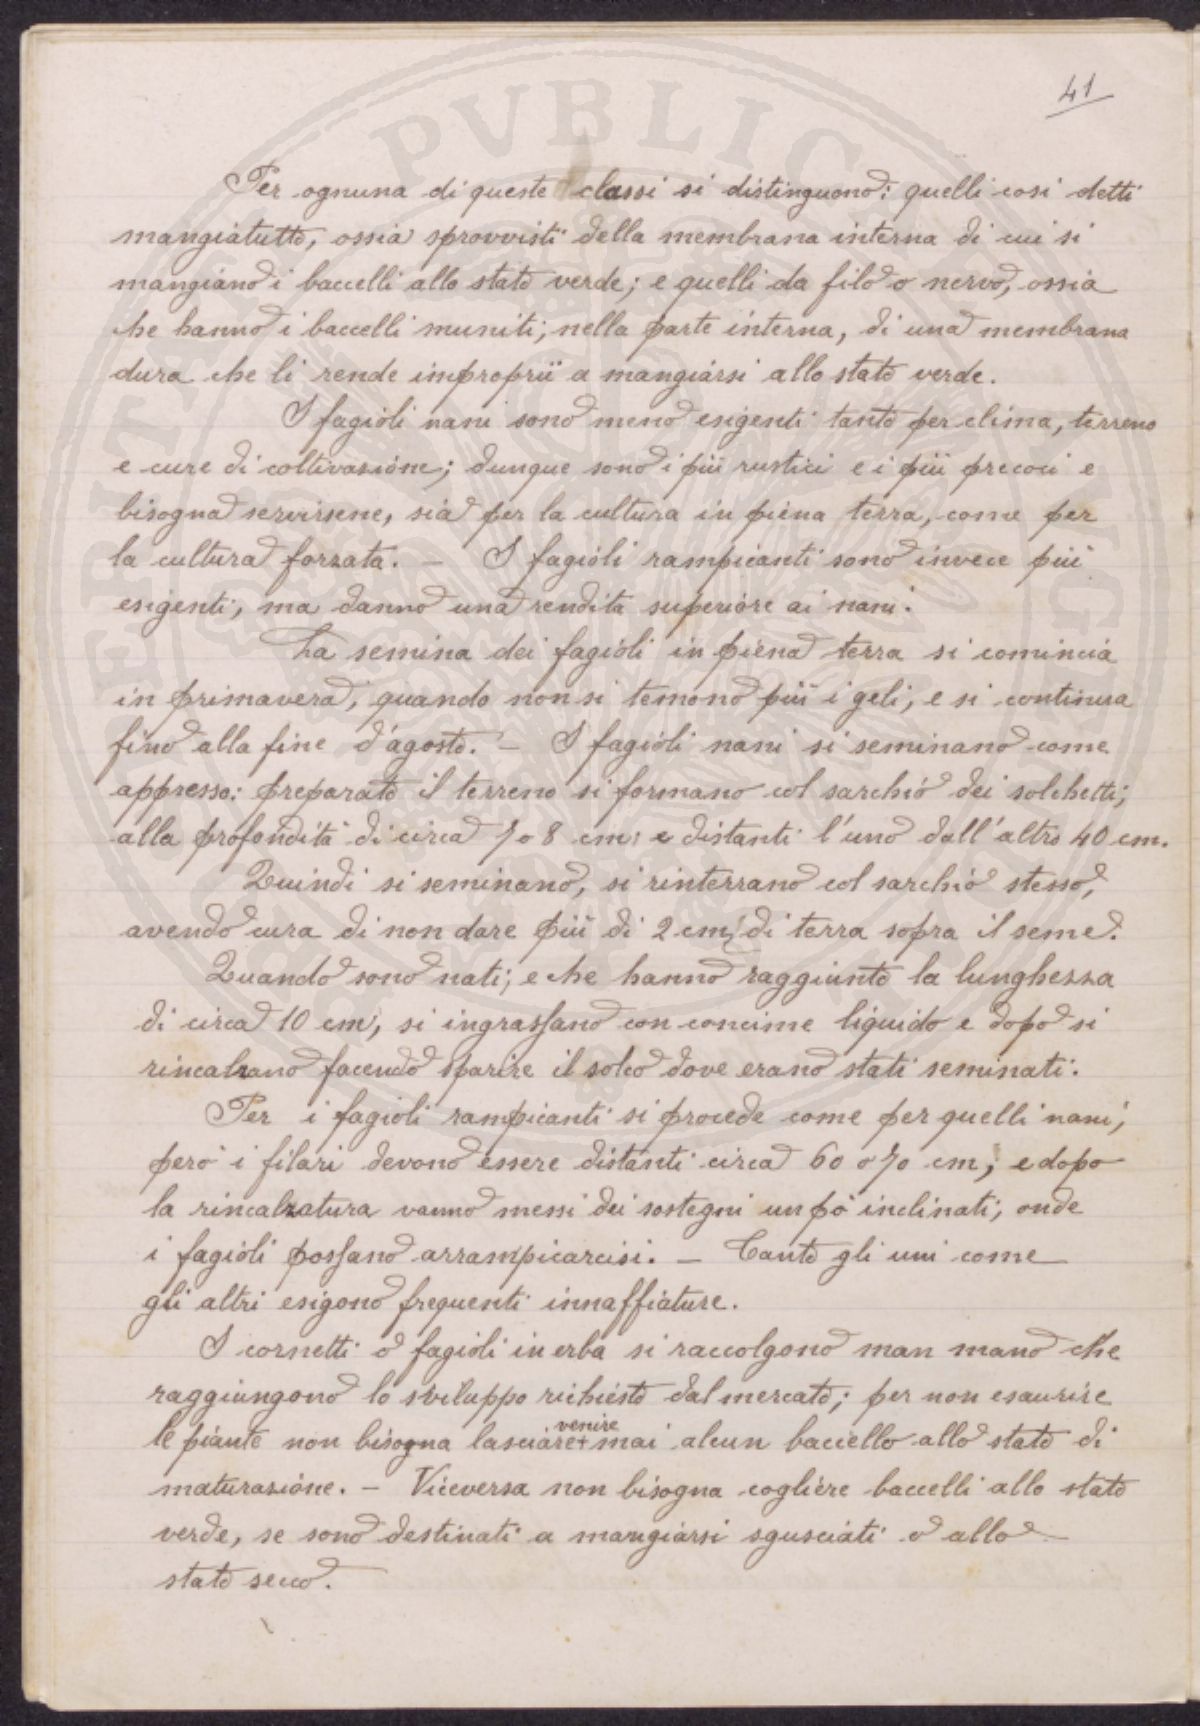 41
Per ognuna di queste classi si distinguono: quelli così detti
mangiatutto, ossia sprovvisti della membrana interna di cui si
mangiano i baccelli allo stato verde; e quelli da filo o nervo, ossia
che hanno i baccelli muniti, nella parte interna, di una membrana
dura che li rende improprii a mangiarsi allo stato verde.
I fagioli nani sono meno esigenti tanto per clima, terreno
e cure di coltivazione; dunque sono i più rustici e i più precoci e
bisogna servirsene, sia per la cultura in piena terra, come per
la cultura forzata. – I fagioli rampicanti sono invece più
esigenti, ma danno una rendita superiore ai nani.
La semina dei fagioli in piena terra si comincia
in primavera, quando non si temono più i geli, e si continua
fino alla fine d'agosto. – I fagioli nani si seminano come
appresso: preparato il terreno si formano col sarchio dei solchetti,
alla profondità di circa 7 o 8 cm. e distanti l'uno dall'altro 40 cm.
Quindi si seminano, si rinterrano col sarchio stesso,
avendo cura di non dare più di 2 cm, di terra sopra il seme.
Quando sono nati, e che hanno raggiunto la lunghezza
di circa 10 cm, si ingrassano con concime liquido e dopo si
rincalzano facendo sparire il solco dove erano stati seminati.
Per i fagioli rampicanti si procede come per quelli nani,
però i filari devono essere distanti circa 60 o 70 cm, e dopo
la rincalzatura vanno messi dei sostegni un pò inclinati, onde
i fagioli possano arrampicarcisi. – Tanto gli uni come
gli altri esigono frequenti innaffiature.
I cornetti o fagioli in erba si raccolgono man mano che
raggiungono lo sviluppo richiesto dal mercato; per non esaurire
venire
le piante non bisogna lasciare+ mai alcun baccello allo stato di
maturazione. – Viceversa non bisogna cogliere baccelli allo stato
verde, se sono destinati a mangiarsi sgusciati o allo
stato secco.
PVBLICAE